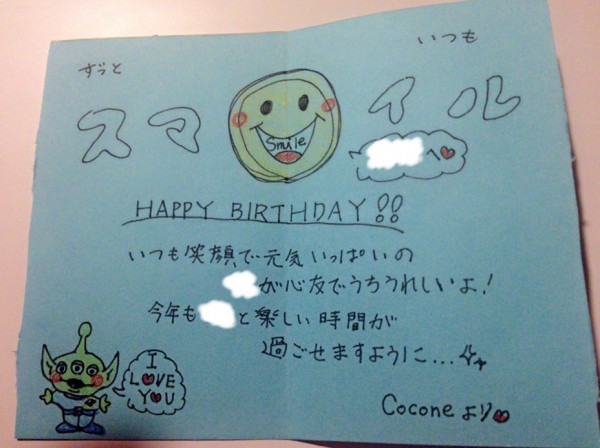 ずっと
いつも
スマイル
Smile
へ
HAPPY BIRTHDAY!!
いつも笑顔で元気いっぱいの
が心友でうちうれしいよ!
今年も と楽しい時間が
過ごせますように...
I LOVE YOU
Coconeより